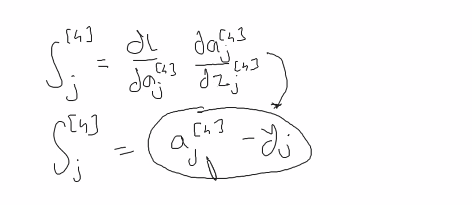 δ_j^[4] = dL/da_j^[4] da_j^[4]/dz_j^[4]
δ_j^[4] = a_j^[4] - y_j